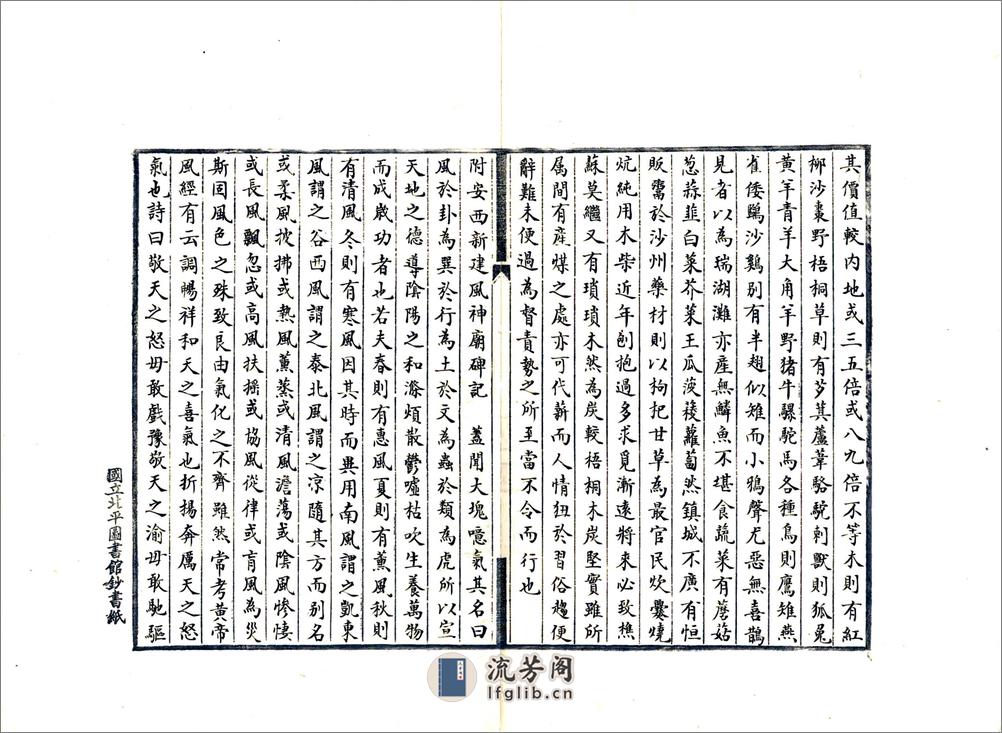 其價值較內地或三五倍或八九倍不等木則有紅
柳沙棗野梧桐草則有芨萁蘆葦駱駝刺獸則狐兔
黃羊青羊大角羊野猪牛騾駝馬各種鳥則鷹雉燕
雀倭鷄沙鷄別有半翅似雉而小鴉聲尤惡無喜鵲
見者以為瑞湖灘亦産無鱗魚不堪食蔬菜有蘑菇
葱蒜韮白菜芥菜王瓜菠薐蘿蔔然鎮城不廣有恒
販鬻於沙州藥材則以枸杞甘草為最官民炊爨燒
炕純用木柴近年刨抱過多求覓漸遠將來必致樵
蘇莫繼又有瑣瑣木然為炭較梧桐木炭堅實雖所
属間有産煤之處亦可代薪而人情狃於習俗趨便
辭難未便過為督責勢之所至當不令而行也
附安西新建風神廟碑記 蓋聞大塊噫氣其名曰
風於卦為巽於行為土於文為蟲於類為虎所以宣
天地之德導陰陽之和滌煩散鬱噓枯吹生養萬物
而成歲功者也若夫春則有惠風夏則有薰風秋則
有清風冬則有寒風因其時而異用南風謂之凱東
風謂之谷西風謂之泰北風謂之凉隨其方而别名
或柔風披拂或熱風薰蒸或清風澹蕩或陰風惨悽
或長風飄忽或高風扶摇或協風從律或肓風為災
斯固風色之殊致良由氣化之不齊雖然常考黃帝
風經有云調暢祥和天之喜氣也折揚奔厲天之怒
氣也詩曰敬天之怒毋敢戲豫敬天之渝毋敢馳驅
國立北平圖書館鈔書紙
流芳阁
lfglib.cn